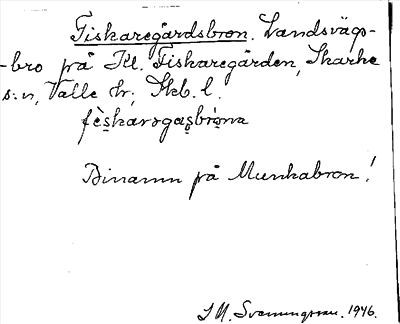 Fiskaregårdsbron. Landsvägs-
-bro på Kl. Fiskaregården, Skarke
s:n, Valle hr; Skb. l.
fèskarəgaʂbròna
Binamn på Munkabron!
J M. Svenningsson. 1946.